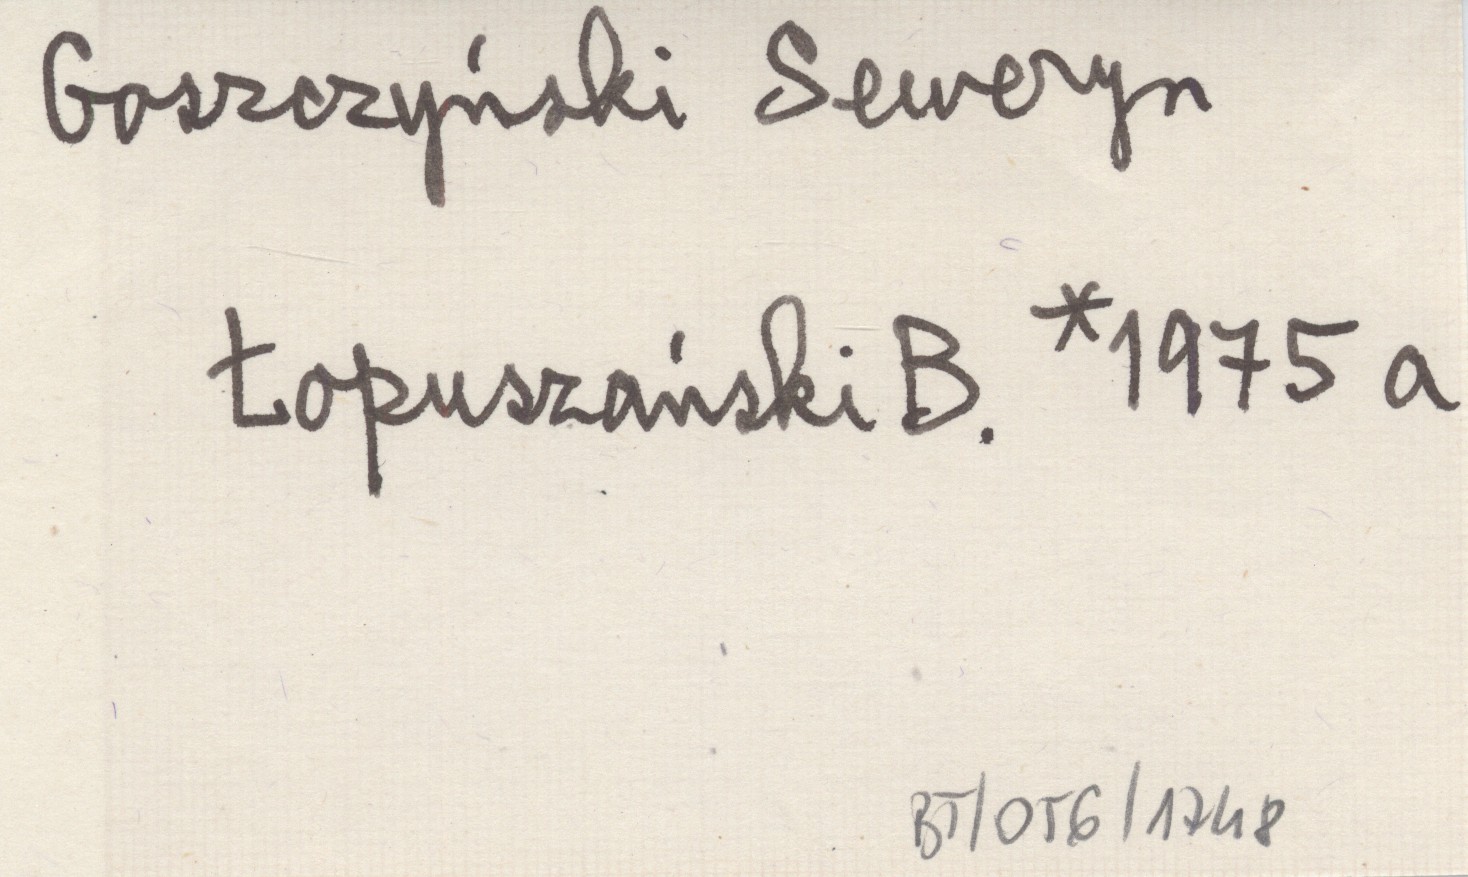 Goszczyński Seweryn
Łopuszański B. *1975 a
BT/OTG/1748